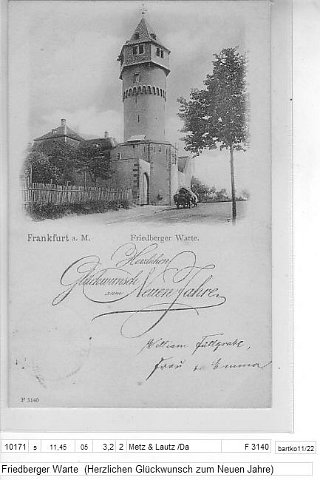 Frankfurt a. M. Friedberger Warte.
Herzlichen
Glückwunsch
zum Neuen Jahre.
William
Frau Emma
F 3140
10171 s 11,45 05 3,2 2 Metz & Lautz /Da F 3140 bartko11/22
Friedberger Warte (Herzlichen Glückwunsch zum Neuen Jahre)